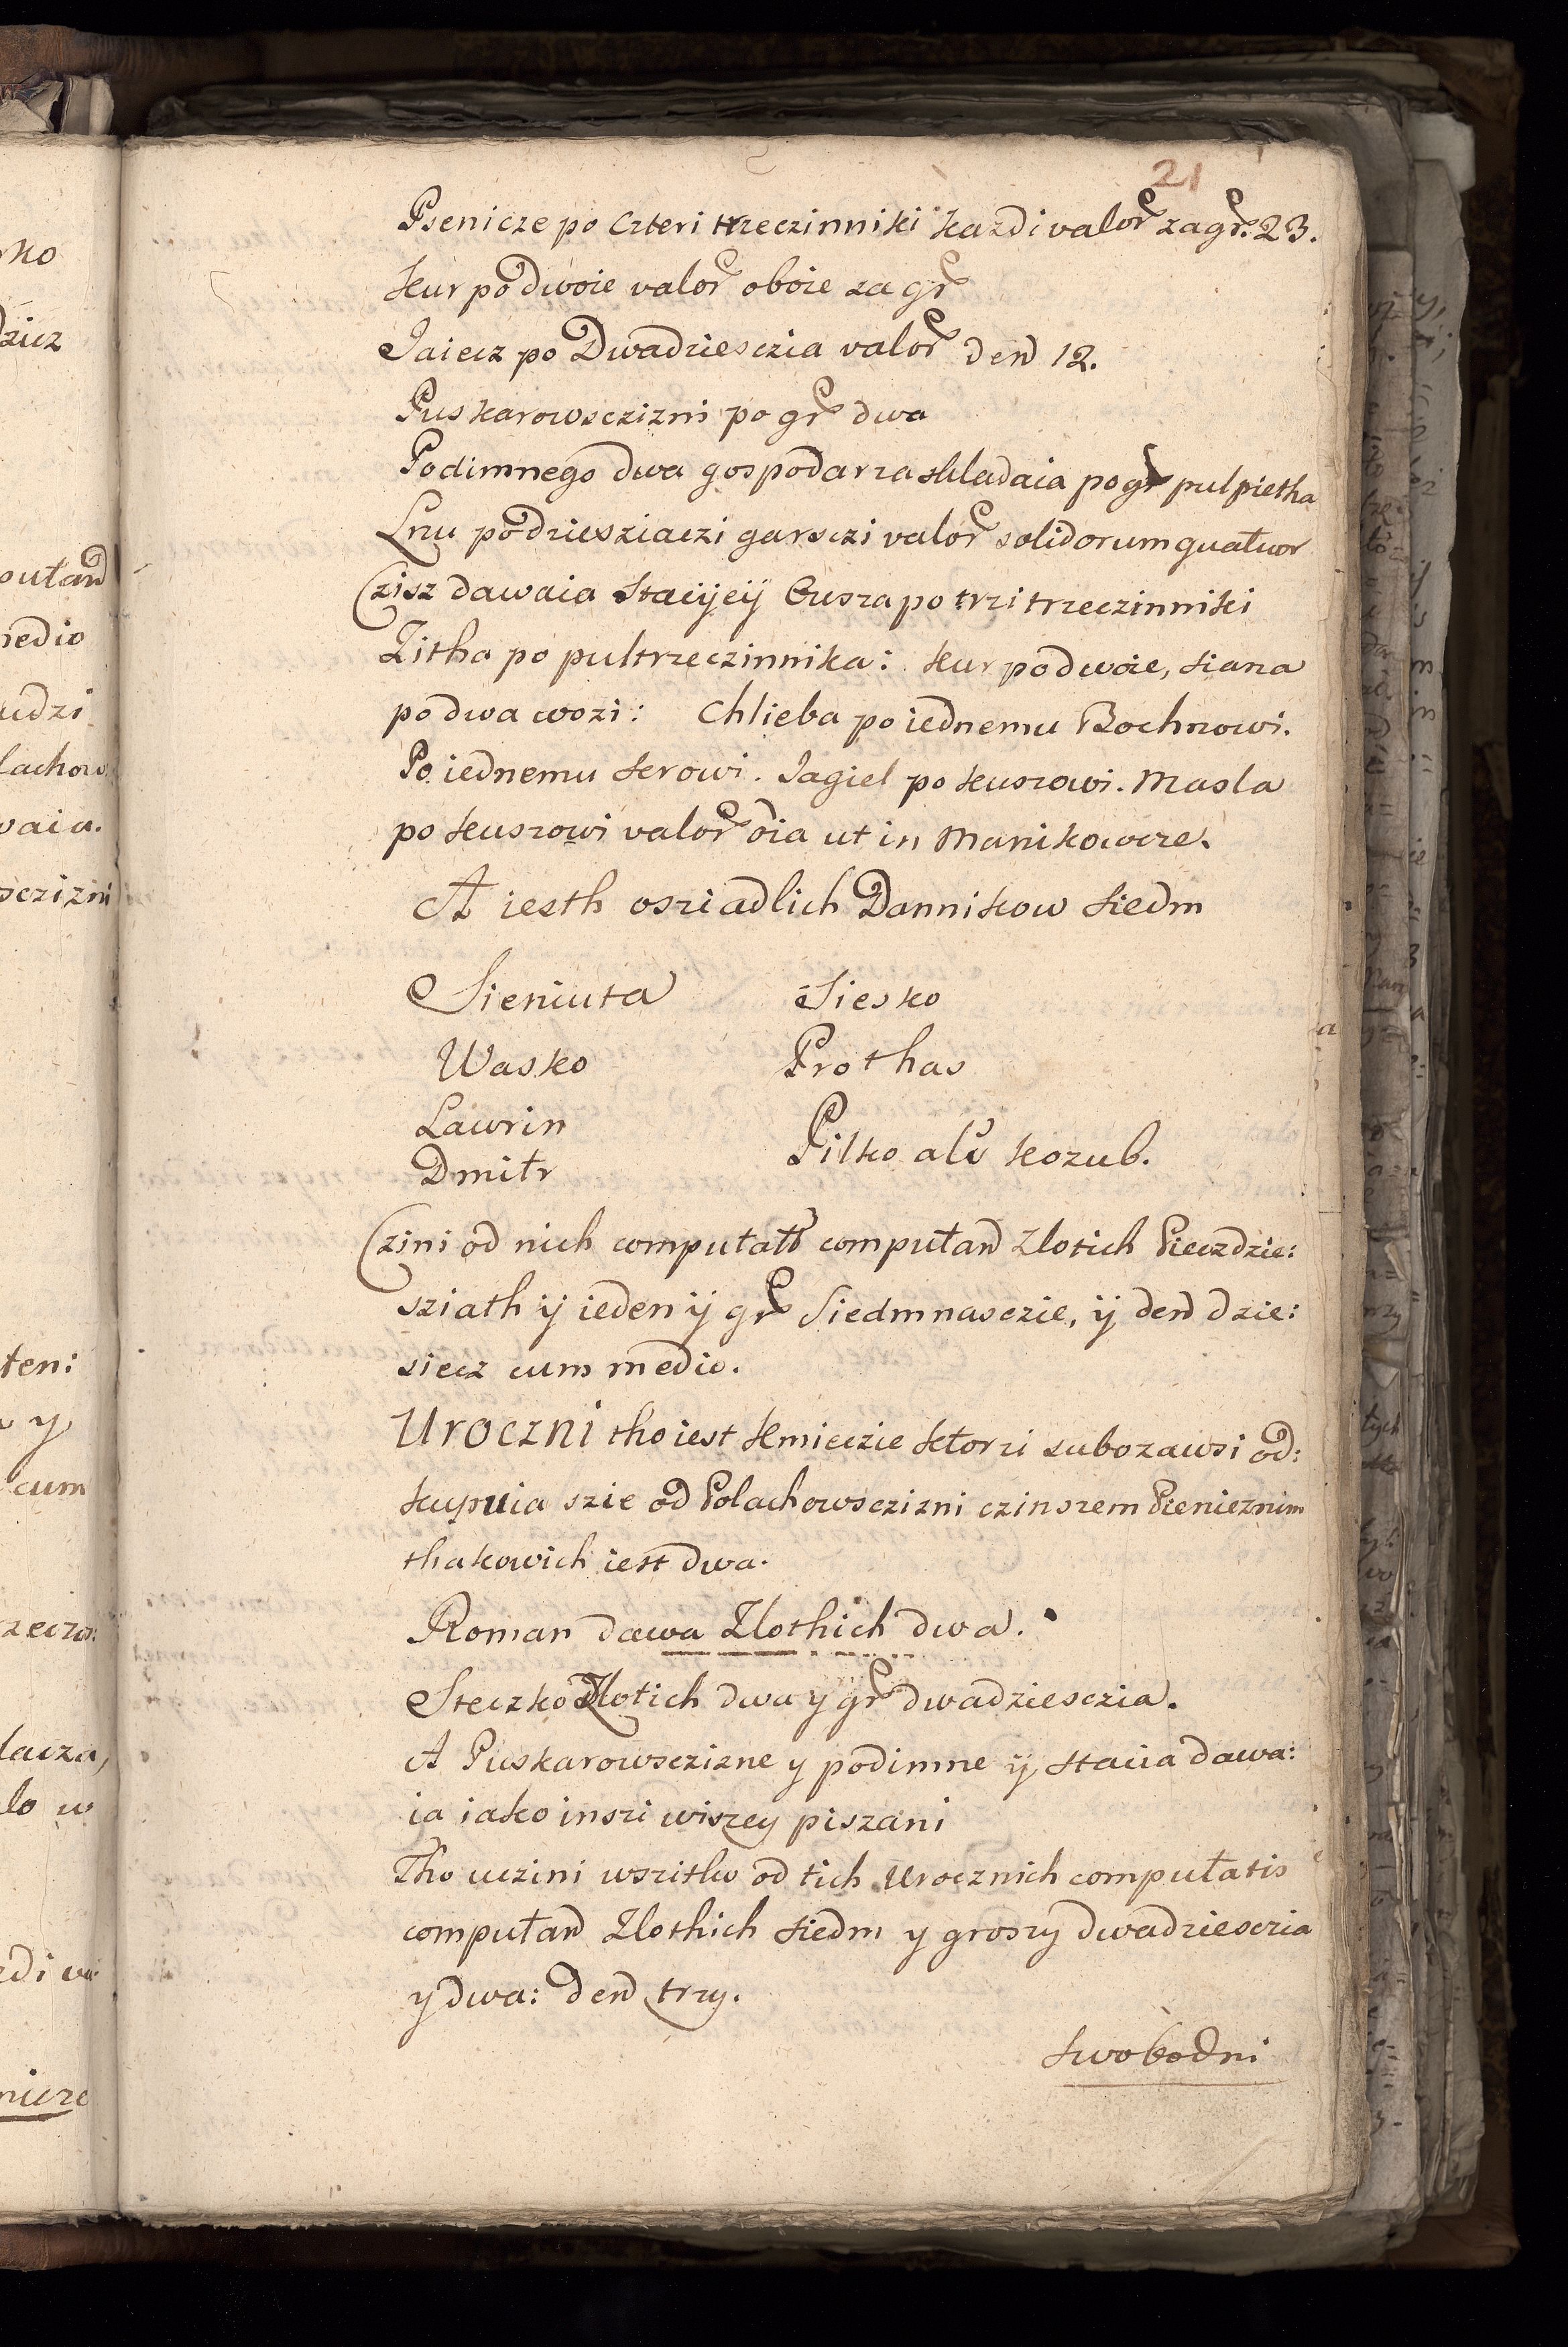 21
Psenicze po czteri trzeczinniki kazdi valor za gr. 23.
Kur po dwoie valor oboie za gr
Jaiecz po Dwadziesczia valor den 12.
Puskarowsczizni po gr dwa
Podimnego dwa gospodarza skladaia po gr pulpietha
Lnu po dziesziaczi garsczi valor solidorum quatuor
Czisz dawaia Stacijeÿ Owsza po trzi trzeczinniki
Zitha po pultrzeczinnika: Kur po dwoie, siana
po dwa wozi: Chlieba po iednemu Bochnowi.
Po iednemu serowi. Jagiel po kuszowi. Masla
po kuszowi valor oia ut in Manikowcze.
A iesth osziadlich Dannikow siedm
Sieniuta Siesko
Wasko Prothas
Lawrin
Pilko alo Kozub.
Dmitr
Czini od nich computatis computand Zlotich Pieczdzie:
sziath ÿ ieden ÿ gr Siedmnasczie, ÿ den dzie:
siecz cum medio.
Uroczni tho iest Kmieczie ktorzi subozawsi od:
kupuia szie od Polachowsczizni czinszem Pienieznim
thakowich iest dwa.
Roman dawa Zlothich dwa.
Steczko Zlotich dwa y gr dwadziesczia.
A Puskarowsczizne y podimne ÿ stacia dawa:
ia iako inszi wiszey piszani
Tho uczini wszitko od tich Urocznich computatis
computand Zlothich siedm y groszy dwadziesczia
y dwa: den trzy.
swobodni